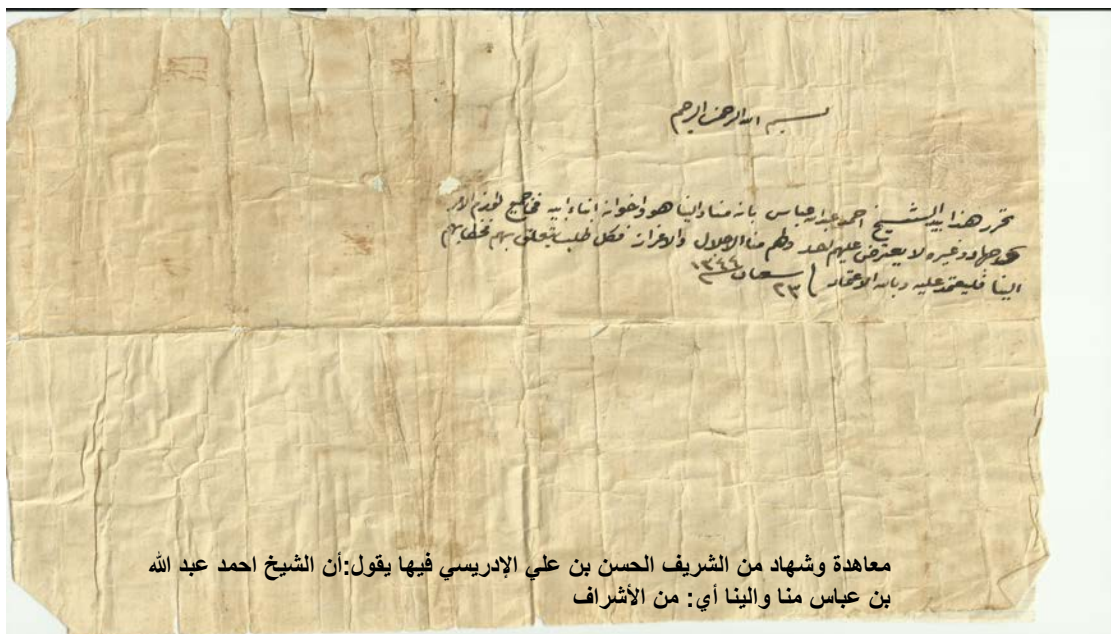 بسم الله الرحمن الرحيم
تحرر هذا بيد الشيخ احمد عبدالله عباس بانه منا والينا هو واخوانه ابناء ابيه في جميع لوازم الامر
جهاد وغيره لا يعترض عليهم احد ولهم منا الاجلال والاعزاز فكل طلب يتعلق بهم فخطابهم
الينا فليعتمد عليه وبالله الاعتماد ٢٣ شعبان ١٣٤٤
معاهدة وشهاد من الشريف الحسن بن علي الإدريسي فيها يقول:أن الشيخ احمد عبد الله
بن عباس منا والينا أي: من الأشراف